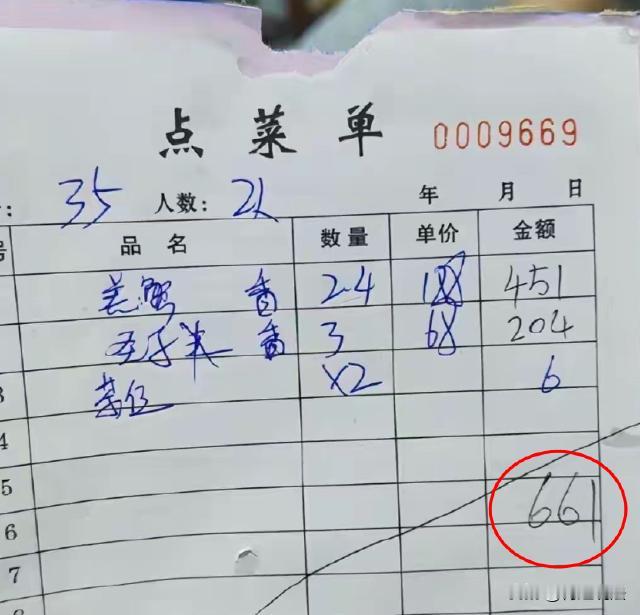 点菜单 0009669
: 35 人数: 2人 年 月 日
号 品名 数量 单价 金额
羔蟹 香 2.4 188 451
香 3 68 204
3 茶位 x2 6
4
5
661
6
7
8